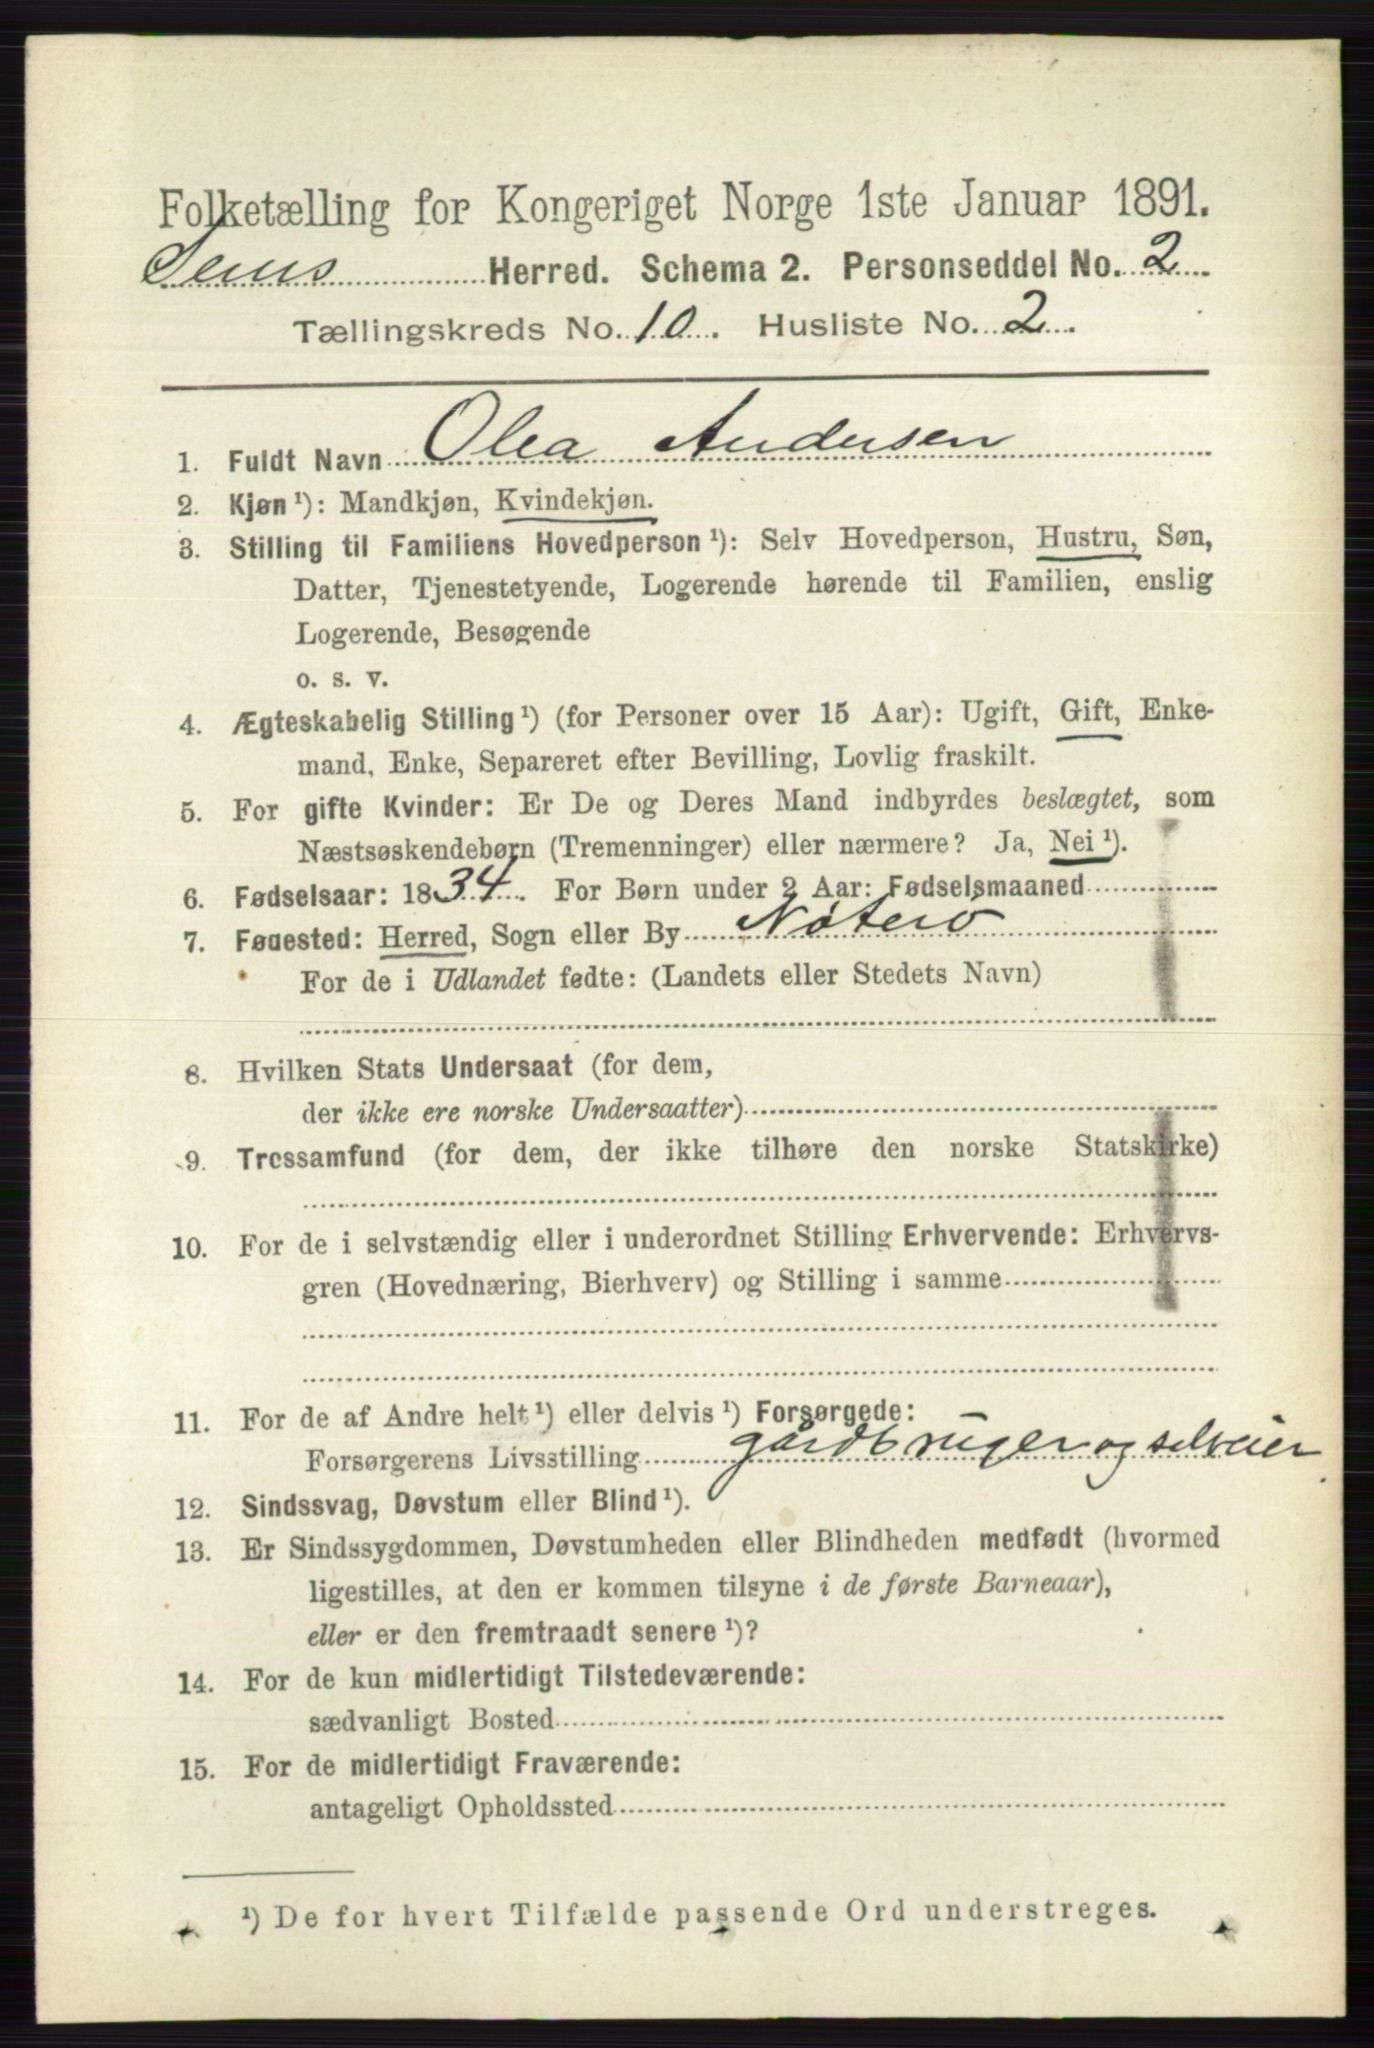 Folketælling for Kongeriget Norge 1ste Januar 1891.
Sems Herred. Schema 2. Personseddel No. 2
Tællingskreds No. 10. Husliste No. 2.
1. Fuldt Navn Olea Andersen
2. Kjøn ¹): Mandkjøn, Kvindekjøn.
3. Stilling til Familiens Hovedperson ¹): Selv Hovedperson, Hustru, Søn,
Datter, Tjenestetyende, Logerende hørende til Familien, enslig
Logerende, Besøgende
o. s. v.
4. Ægteskabelig Stilling ¹) (for Personer over 15 Aar): Ugift, Gift, Enke-
mand, Enke, Separeret efter Bevilling, Lovlig fraskilt.
5. For gifte Kvinder: Er De og Deres Mand indbyrdes beslægtet, som
Næstsøskendebørn (Tremenninger) eller nærmere? Ja, Nei ¹).
6. Fødselsaar: 1834. For Børn under 2 Aar: Fødselsmaaned
7. Føuested: Herred, Sogn eller By Nøterø
For de i Udlandet fødte: (Landets eller Stedets Navn)
8. Hvilken Stats Undersaat (for dem,
der ikke ere norske Undersaatter)
9. Trossamfund (for dem, der ikke tilhøre den norske Statskirke)
10. For de i selvstændig eller i underordnet Stilling Erhvervende: Erhvervs-
gren (Hovednæring, Bierhverv) og Stilling i samme
11. For de af Andre helt ¹) eller delvis ¹) Forsørgede:
Forsørgerens Livsstilling gårdbruger og selveier
12. Sindssvag, Døvstum eller Blind ¹).
13. Er Sindssygdommen, Døvstumheden eller Blindheden medfødt (hvormed
ligestilles, at den er kommen tilsyne i de første Barneaar),
eller er den fremtraadt senere ¹)?
14. For de kun midlertidigt Tilstedeværende:
sædvanligt Bosted
15. For de midlertidigt Fraværende:
antageligt Opholdssted
¹) De for hvert Tilfælde passende Ord understreges.